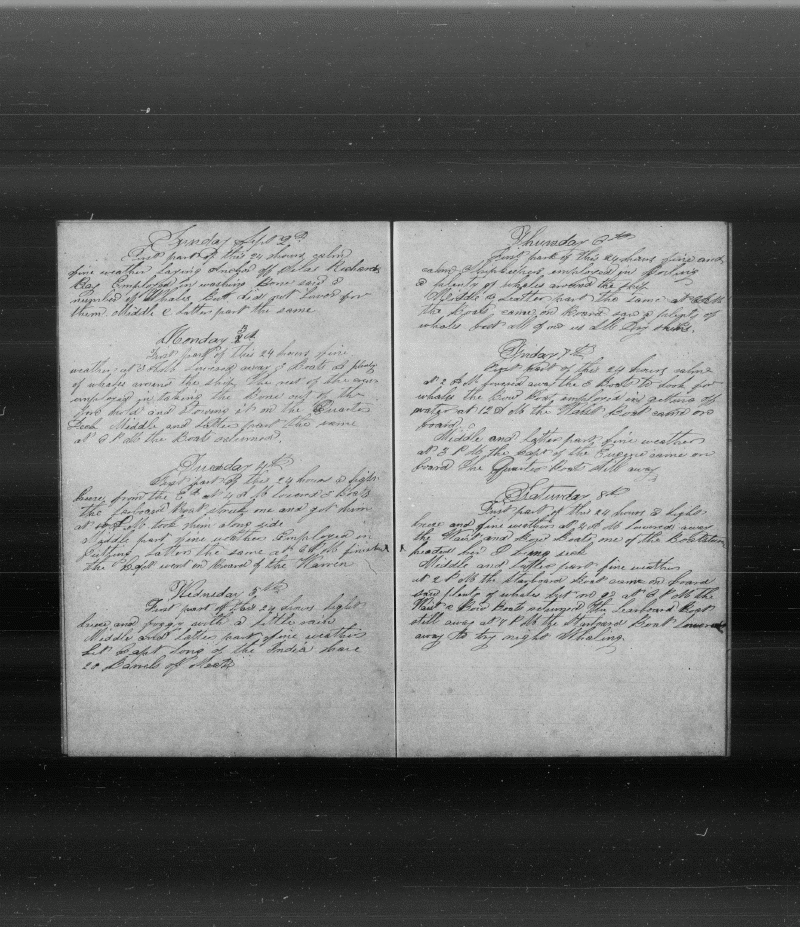 Sunday Sept 2d
First part of this 24 hours calm
fine weather laying Anchord off
Bay Employed in washing bone said a
number of Whales but did not Lower for
them Middle & latter part the same
Monday 3d
First part of this 24 hours fine
weather at 3 lowered away 3 Boats a plenty
of whales around the ship The rest of the crew
employed in taking the bone out of the
fore hold and stowing it on the Quarter
Deck Middle and latter part the same
at 6 P M the Boats returned
Tuesday 4th
First part of this 24 hours a light
breeze from the at 4 A M lowerd 3 Boats
the Larboard Boat struck one and got him
at took him along side
Middle part fine weather Employed in
Cutting Latter the same at 6 P M finished
the Capt went on board of the Warren
Wednsday 5th
First part of this 24 hours light
breeze and foggy with a little rain
Middle and latter part fine weather
Let Capt Long of the India have
20 Barrels of Meat
Thursday 6th
First part of this 24 hours fine and
calm employed in
a plenty of whales around the ship
Middle & Latter part the same at
the Boats came on board saw a plenty of
whales but all of no use
Friday 7th
First part of this 24 hours calm
at 2 A M lowered away the 3 Boats to look for
whales the Bow Boat employed in getting off
water at 12 M the Waist Boat came on
board
Middle and latter part fine weather
at 3 P M the Capt of the Eugene came on
board the Quarter Boats still away
Saturday 8th
First part of this 24 hours a light
breeze and fine weather at 4 A M lowered away
the Waist and Bow Boats one of the Boatsteerers
headed her I being sick
Middle and latter part fine weather
at 2 P M the Starboard Boat came on board
saw plenty of whales but no go at 6 P M the
Waist & Bow Boats returned the Larboard Boat
still away at 7 P M the Starboard Boat lowered
away to try night Whaling.